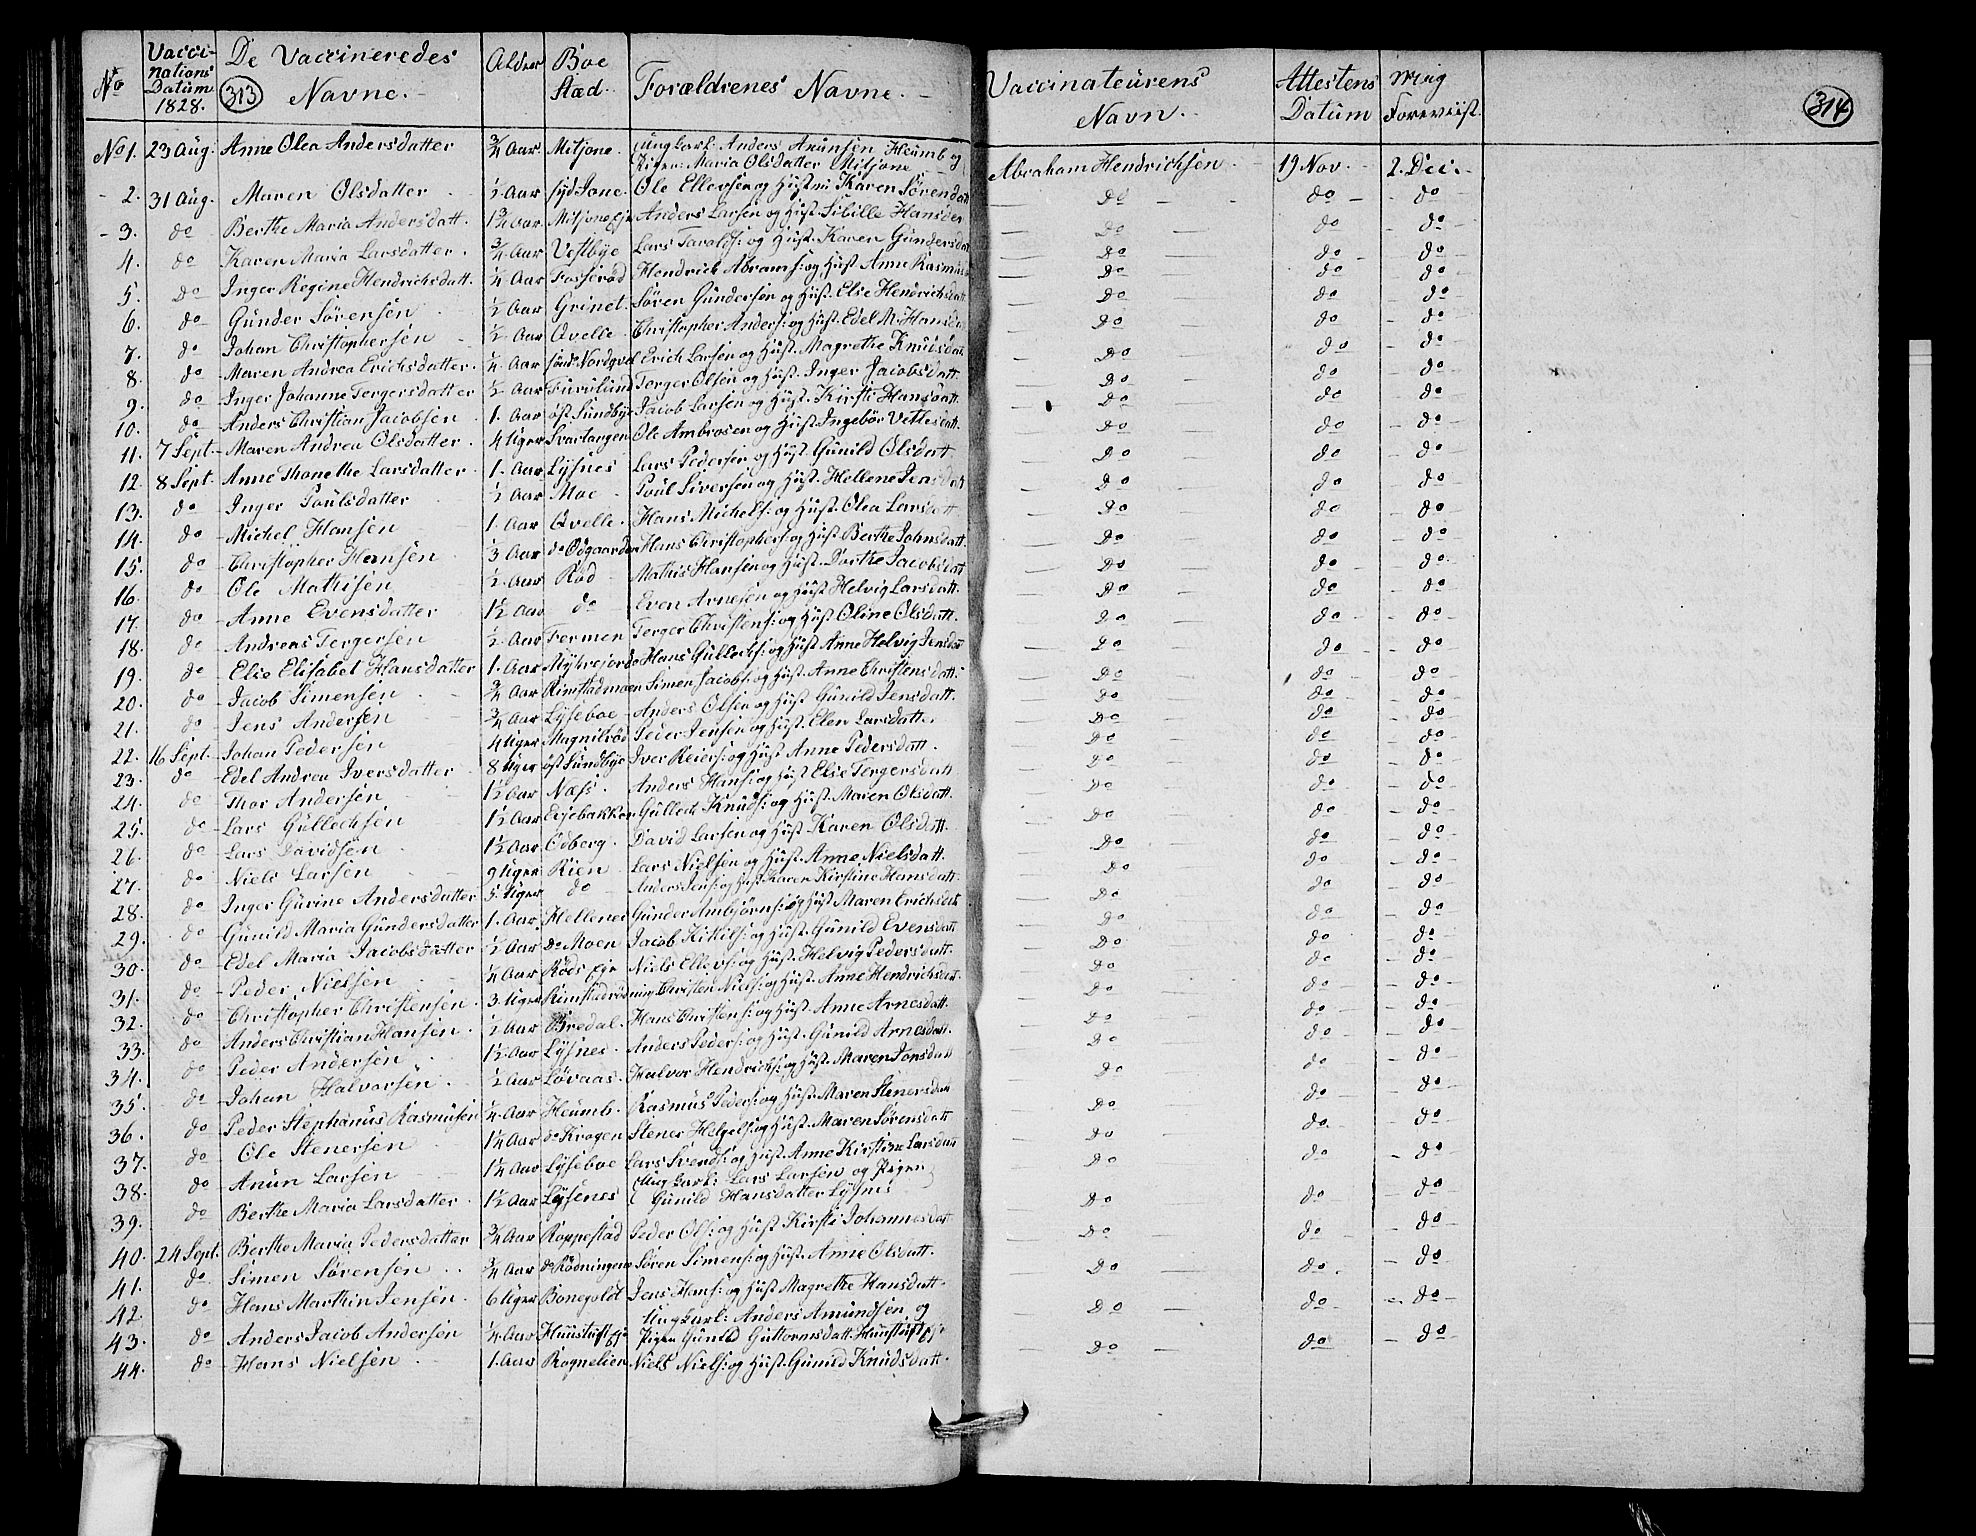 No Vaccinations Datum 1828. De Vaccineredes Navne. Alder Boe Stæd. Forældrenes Navne. Vaccinateurens Navn. Attestens Datum mig Foreviist.
313 314
No 1. 23 Aug. Anne Olea Andersdatter ¾ Aar Mitjone Ung Karl: Anders Anunsen Heumb og Pigen: Maria Olsdatter Mitjone Abraham Hendrichsen 19 Nov. 2. Dec:
2. 31 Aug. Maren Olsdatter ½ Aar Syd Jone Ole Ellevsen og Hustru Karen Sørendatt do do do
3. do Berthe Maria Andersdatt. 1¾ Aar Mitjone Eje Anders Larsen og Hust. Sibille Hansdatt do do do
4. do Karen Maria Larsdatter ¾ Aar Vestbye Lars Taralds: og Hust. Karen Gundersdatt do do do
5. do Inger Regine Hendrichsdatt. ¼ Aar Fosserød Hendrick Abrams: og Hust Anne Rasmus do do do
6. do Gunder Sörensen ½ Aar Grinet Sören Gundersen og Hust. Elie Hendrichsdatt do do do
7. do Johan Christophersen ½ Aar Qvelle Christopher Anders: og Hust. Edel M: Hansda do do do
8. do Maren Andrea Erichsdatter ¼ Aar Søndr Nordqvel Erich Larsen og Hust. Magrethe Knudsdatt do do do
9. do Inger Johanne Tergersdatter ½ Aar Furulund Terger Olsen og Hust. Inger Jacobsdatt. do do do
10. do Anders Christian Jacobsen 1. Aar öst Sundbye Jacob Larsen og Hust. Kirsti Hansdatt. do do do
11. 7 Sept. Maren Andrea Olsdatter 4 Uger Svartangen Ole Ambrosen og Hust Ingebör Vettesdatt. do do do
12. 8 Sept. Anne Thonethe Larsdatter 1. Aar Lysnes Lars Pedersen og Hust. Gunild Olsdatt do do do
13. do Inger Poulsdatter ½ Aar Moe Poul Siversen og Hust. Hellene Jensdatt do do do
14. do Michel Hansen 1. Aar Qvelle Hans Michels: og Hust. Olea Larsdatt do do do
15. do Christopher Hansen 3 Aar do Odgaarden Hans Christophers: og Hust Berthe Johnsdatt. do do do
16. do Ole Mathisen ½ Aar Röd Mathis Hansen og Hust. Dorthe Jacobsdat do do do
17. do Anne Evensdatter 1½ Aar do Even Arnesen og Hust Helvig Larsdatt. do do do
18. do Andreas Tergersen ½ Aar Fermen Terger Christens: og Hust Oline Olsdatt. do do do
19. do Elie Elisabet Hansdatter 1. Aar Myhrejordet Hans Gullechs: og Hust. Anne Helvig Jensdatt do do do
20. do Jacob Simensen ¾ Aar Rimstadmoen Simen Jacobs: og Hust. Anne Christensdatt: do do do
21. do Jens Andersen ¾ Aar Lyseboe Anders Olsen og Hust. Gunild Jensdatt. do do do
22. 16 Sept. Johan Pedersen 4 Uger Magnilröd Peder Jensen og Hust. Elen Larsdatter do do do
23. do Edel Andrea Iversdatter 8 Uger öst Sundbye Iver Reiers: og Hust Anne Pedersdatt. do do do
24. do Thor Andersen 1½ Aar Næss Anders Hans: og Hust Elie Tergersdatt do do do
25. do Lars Gullechsen 1½ Aar Eijebakken Gullech Knuds: og Hust. Maren Olsdatt. do do do
26. do Lars Davidsen 1½ Aar Odberg David Larsen og Hust. Karen Olsdatt. do do do
27. do Niels Larsen 9 Uger Rien Lars Nielsen og Hust. Anne Nielsdatt. do do do
28. do Inger Gurine Andersdatter 5 Uger do Anders Jens: og Hust Karen Kirstine Hansdatt. do do do
29. do Gunild Maria Gundersdatter 1. Aar Hellenes Gunder Ambjörns: og Hust Maren Erichsdatt do do do
30. do Edel Maria Jacobsdatter ½ Aar do Moen Jacob Kittils: og Hust. Gunild Evensdatt do do do
31. do Peder Nielsen ¼ Aar Röds Eje Niels Ellevs: og Hust. Helvig Pedersdatt. do do do
32. do Christopher Christensen 3 Uger Rimstadrødning Christen Niels: og Hust. Anne Hendrichsdatt do do do
33. do Anders Christian Hansen ½ Aar Bredal Hans Christens: og Hust. Anne Arnesdatt. do do do
34. do Peder Andersen 1½ Aar Lysnes Anders Peders: og Hust. Gunild Arnesdatt. do do do
35. do Johan Halvorsen ½ Aar Lövaas Halvor Hendrichs: og Hust. Maren Jonsdatt do do do
36. do Peder Stephanus Rasmusen ¼ Aar Heumb. Rasmus Peders: og Hust. Maren Stenersdatt do do do
37. do Ole Stenersen 1¼ Aar do Krogen Stener Helgels: og Hust. Maren Sörensdatt do do do
38. do Anun Larsen 1¼ Aar Lyseboe Lars Svends: og Hust. Anne Kirstine Larsdatt do do do
39. do Berthe Maria Larsdatter 1½ Aar Lysenes Ung Karl: Lars Larsen og Pigen Gunild Hansdatter Lysnes do do do
40. 24 Sept. Berthe Maria Pedersdatter ¾ Aar Roppestad Peder Ols: og Hust. Kirsti Johannesdatt do do do
41. do Simen Sörensen ¾ Aar do Rödningene Sören Simens: og Hust. Anne Olsdatt. do do do
42. do Hans Marthin Jensen 6 Uger Bonegolt Jens Hans: og Hust Magrethe Hansdatt do do do
43. do Anders Jacob Andersen ¼ Aar Huustuft Eje Ung Karl: Anders Amundsen og Pigen Gunild Guttormsdatt. Huustuft Eje do do do
44. do Hans Nielsen 1. Aar Rognelien Niels Niels: og Hust. Gunild Knudsdatt. do do do